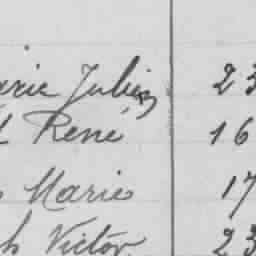 Julien 23
René 16
Marie 17
Victor 23